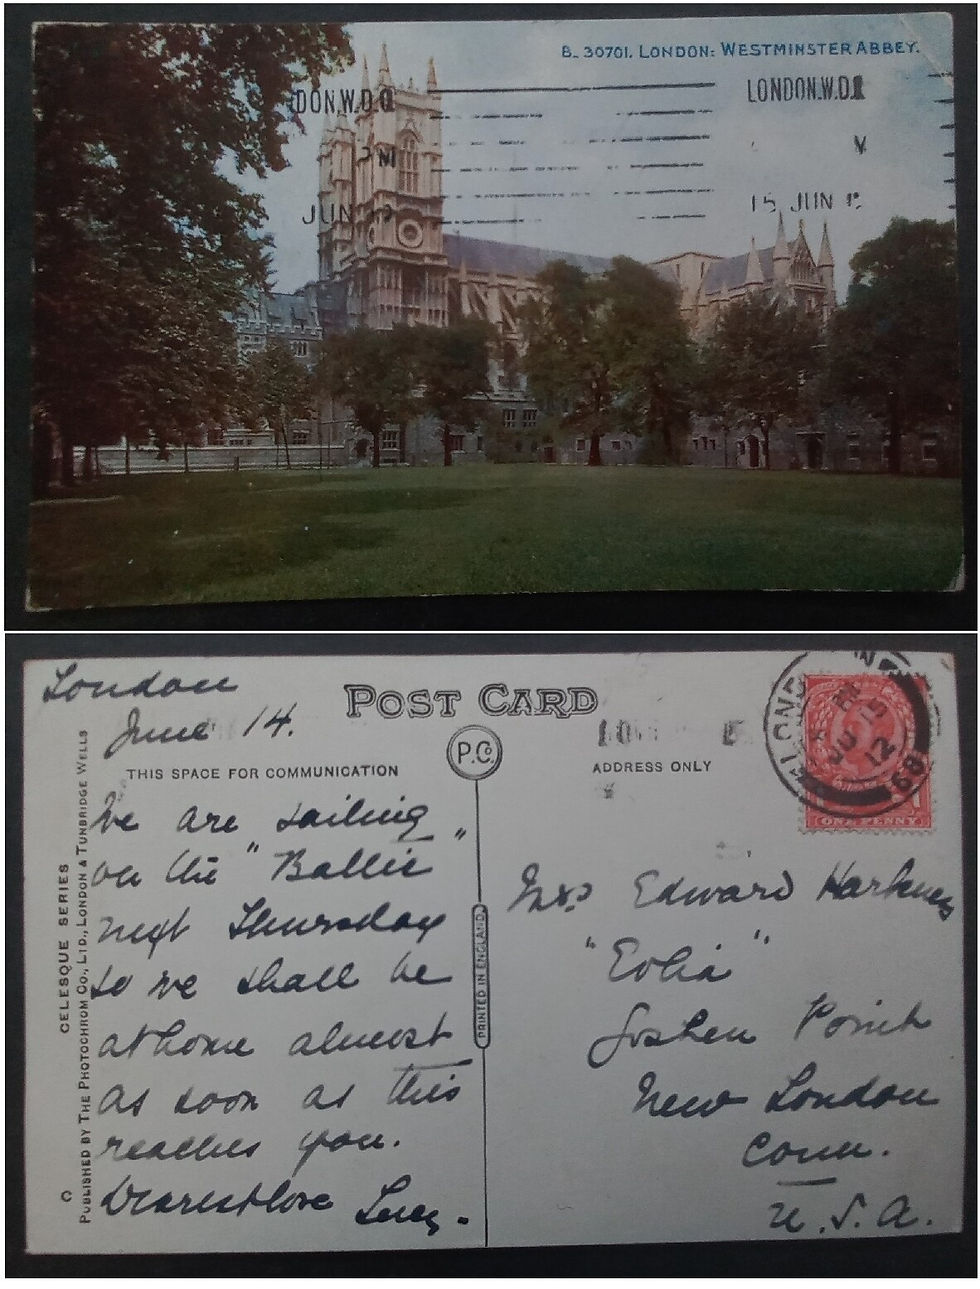 B. 30701. LONDON: WESTMINSTER ABBEY.
DON.W.D.O
LONDON.W.D.
PM
JUN 12
15 JUN
London
June 14.
POST CARD
P.C.
THIS SPACE FOR COMMUNICATION
ADDRESS ONLY
We are sailing
on the "Baltic"
next Thursday
so we shall be
at home almost
as soon as this
reaches you.
Dearest love Lucy.
CELESQUE SERIES
C PUBLISHED BY THE PHOTOCHROM CO., LTD., LONDON & TUNBRIDGE WELLS
PRINTED IN ENGLAND
LONDON
JU 15
12
89
ONE PENNY
Mrs Edward Harkness
"Eolia"
Goshen Point
New London
Conn.
U.S.A.